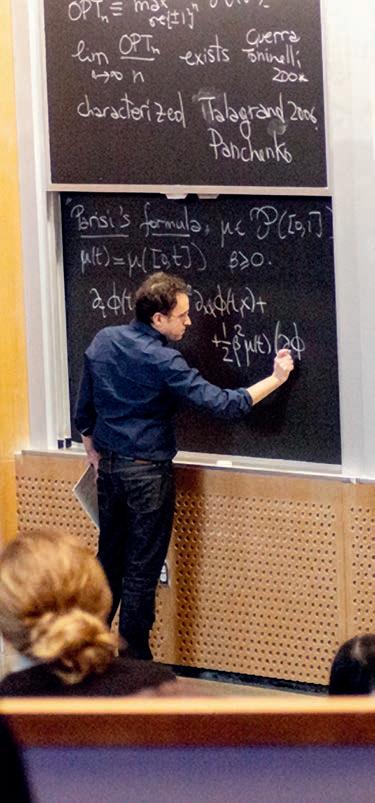 OPTₙ ≡ max
σ∈{±1}ⁿ
lim OPTₙ exists Guerra
n→∞ n Toninelli
200x
characterized Talagrand 2006,
Panchenko
Parisi's formula, μ ∈ 𝒫([0,1])
μ(t) = μ([0,t]) β≥0.
∂ₜφ(t ∂ₓₓφ(t,x)+
+½β²μ(t)(∂φ